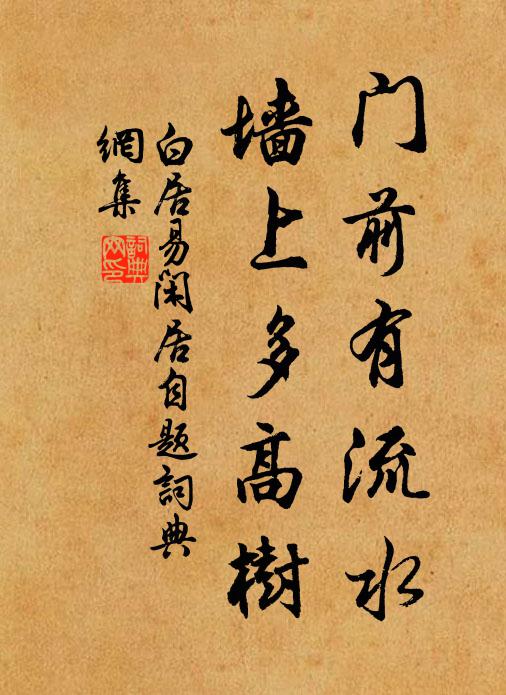 门前有流水
墙上多高樹
白居易闲居自题詞典
網集
詞典
网印